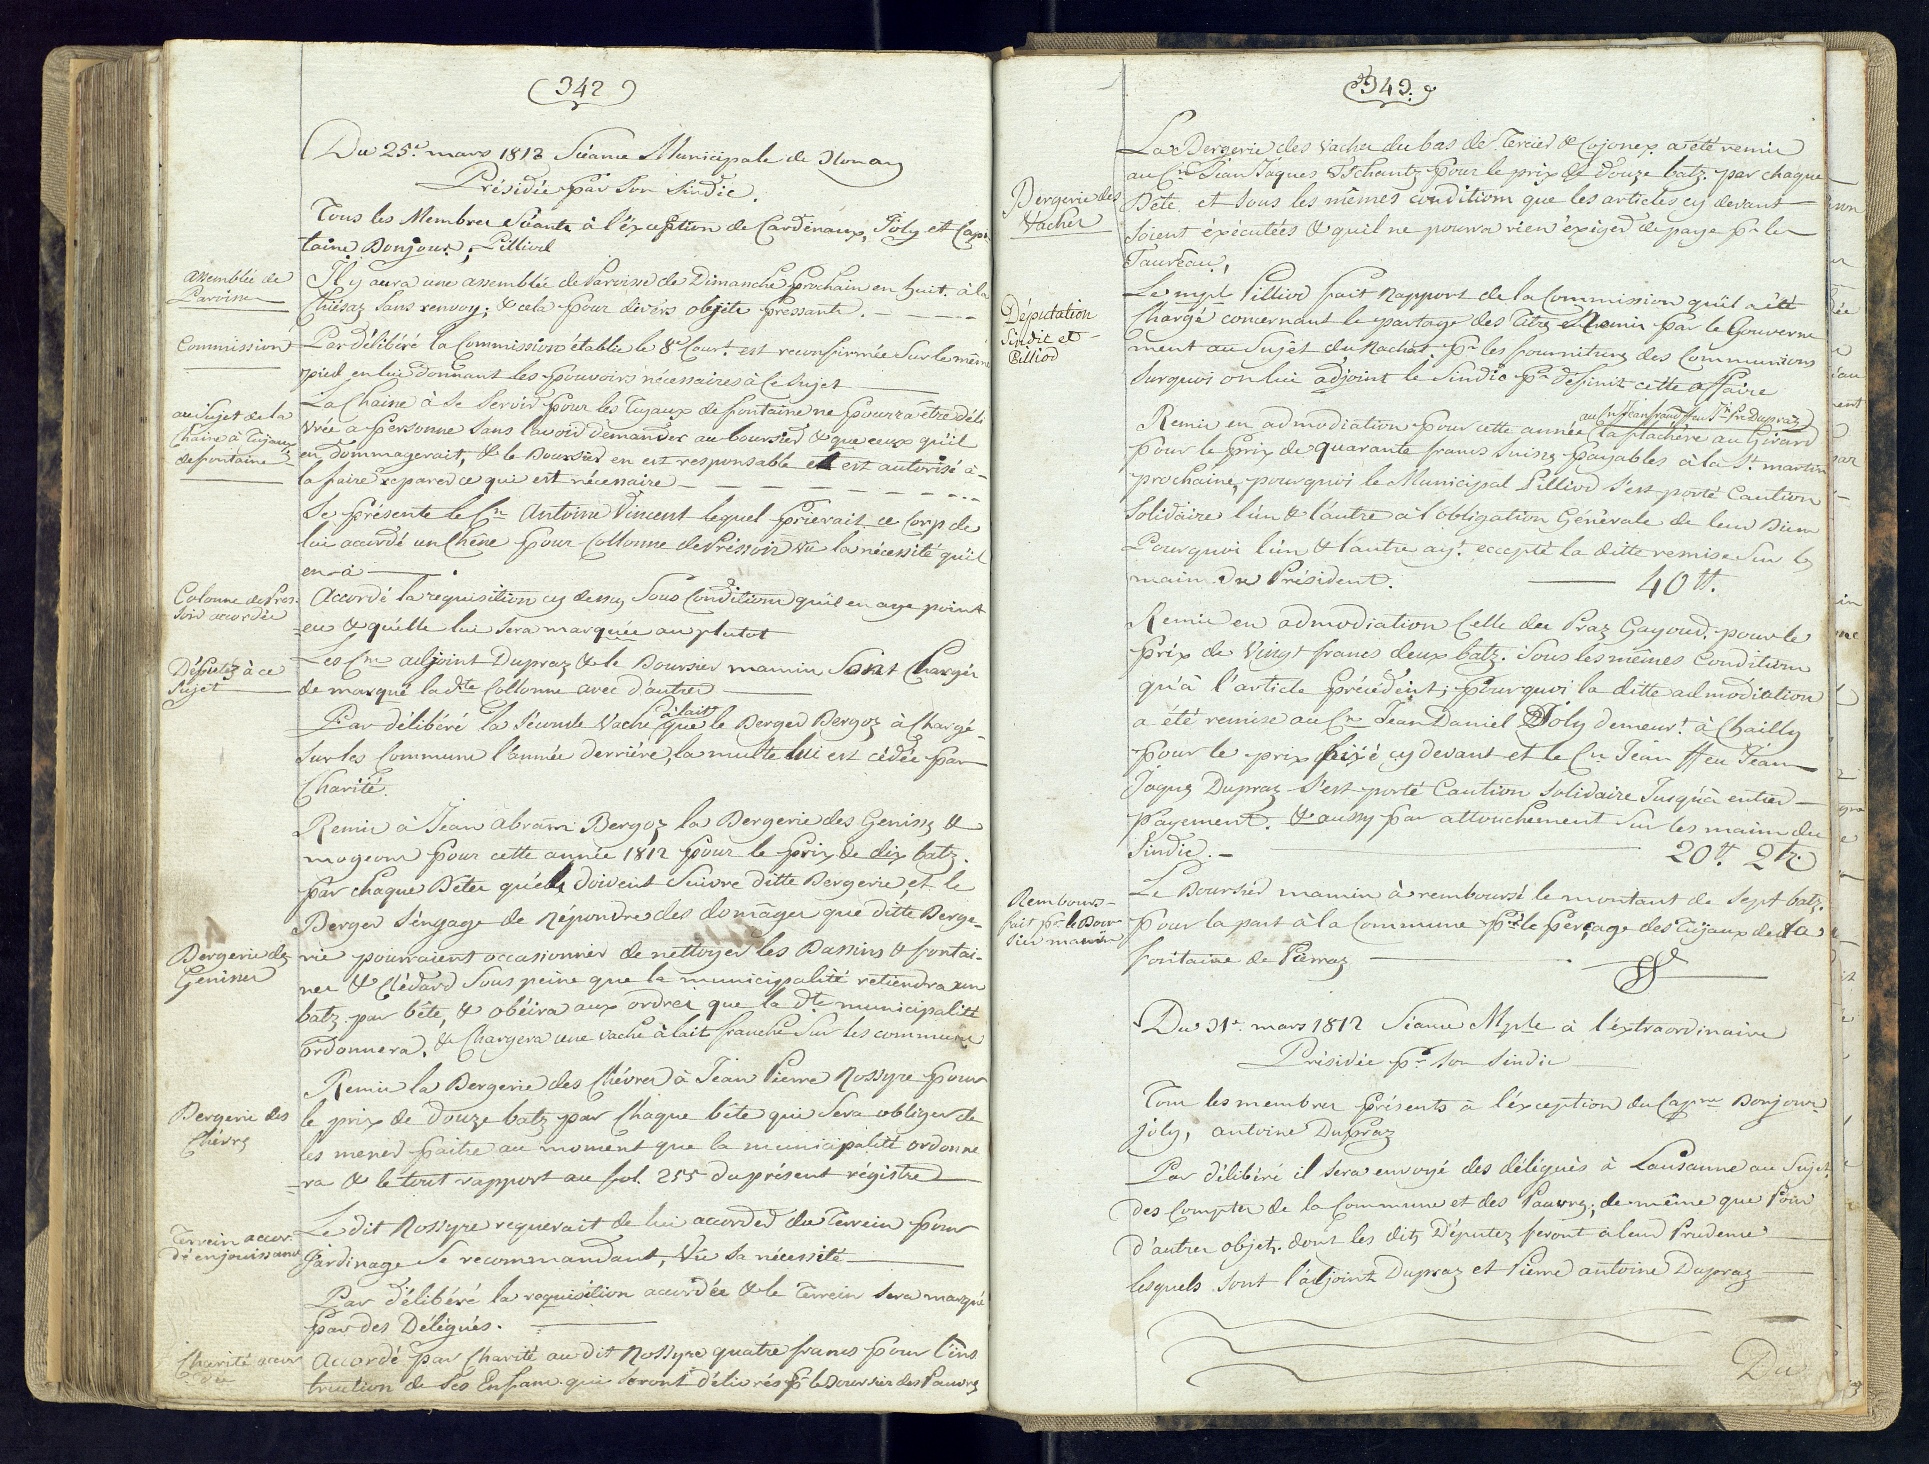 (342)
Du 25e. mars 1812 Séance Municipale de Blonay
Présidée par Son Sindic.
Tous les Membres Séants à l'éxception de Cardinaux, Joly et Capi-
taine Bonjour, Pilliod
assemblée de
Paroisse
Il y aura une assemblée de Paroisse de Dimanche prochain en huit. à la
Chiésaz Sans renvoy; & cela pour divers objets pressants.
Commission
Par délibéré la Commission établie le 8e Court. est reconfirmée Sur le même
pied en lui donnant les pouvoirs nécessaires à ce Sujet
au Sujet de la
Chaine à Tujaux
de fontaine
La Chaine à Se Servir pour les Tuyaux de fontaine ne pourra être déli
vrée à personne Sans l'avoir demander au boursier & que ceux qu'il
en dommagerait, & le Boursier en est responsable et est autorisé à
la faire reparer ce qui est nécessaire
Se présente le Cn Antoine Vincent lequel prierait ce Corp de
lui accordé un Chêne pour Collonne de Préssoir vû la nécessité qu'il
en à
Colonne de Pres-
soir accordée
Accordé la requisition cy dessus Sous Condition qu'il en aye point
eu & qu'elle lui Sera marquée au plutot
Députez à ce
Sujet
Les Cns adjoint Dupraz & le Boursier mamin Sont Chargés
de marqué la dte Collonne avec d'autres
Par délibéré la Séconde Vache à lait que le Berger Bergoz à Chargé
Sur les Commune l'année derrière, la multe lui est cédée par
Charité.
Remis à Jean Abram Bergoz la Bergerie des Genisses &
mogeons pour cette année 1812 pour le prix de dix batz.
par chaque Bêtes qu'elles doivent Suivre ditte Bergerie, et le
Berger S'engage de Répondre des domâges que ditte Berge-
Bergerie des
Genisses
rie pourraient occasionner de nettoyer les Bassins & fontai-
nes & Clédard Sous peine que la municipalité retiendra un
batz. par bête, & obéira aux ordres que la dte municipalité
ordonnera, & Chargera une vache à lait franche Sur les commune
Remis la Bergerie des Chévres à Jean Pierre Rossyre pour
Bergerie des
Chévres
le prix de Douze batz par Chaque bête qui Sera obliger de
les mener paitre au moment que la municipalité ordonne
ra & le tout rapport au fol. 255 du présent régistre
Terrein accor-
dé en jouissance
Le dit Rossyre requerait de lui accorder du Terrein pour
Jardinage Se recommandant, Vû Sa nécessité
Par délibéré la requisition accordée & le Terrein Sera marqué
par des Délégués.
Charité accor
dée
Accordé par Charité au dit Rossyre quatre francs pour l'ins
truction de Ses Enfans qui Seront délivrés pr le Boursier des Pauvres
343.
Bergerie des
Vaches
La Bergerie des Vaches du bas de Tercier & Cojonex a été remis
au Cn Jean Jaques Tschantz pour le prix de Douze batz. par chaque
Bête et Sous les mêmes condition que les articles cy devant
Soient éxécutées & qu'il ne pourra rien éxiger de paye pr le
Taureau,
Députation
Sindic et
Pilliod
Le mpl Pilliod fait Rapport de la Commission qu'il a été
Chargé concernant le partage des Titres Remis par le Gouverne
ment au Sujet du Rachat. pr les fournitures des Communions
Surquoi on lui adjoint le Sindic pr définir cette affaire
Remis en admodiation pour cette année la plachère au Girard
au Cn Jean françois ffeu Jn frs Dupraz
pour le prix de quarante francs Suisses payables à la St. martin
prochaine, pourquoi le Municipal Pilliod S'est porté Caution
Solidaire l'un & l'autre à l'obligation Générale de leur Biens
Pourquoi l'un & l'autre ayt. accepté la ditte remise Sur les
mains du Président. 40 tt.
Remis en admodiation Celle des Praz Gayoud. pour le
prix de Vingt francs deux batz. Sous les mêmes Condition
qu'à l'article précédent; pourquoi la ditte admodiation
a été remise au Cn Jean Daniel Joly demeurt. à Chailly
pour le prix fixé cy devant et le Cn Jean ffeu Jean
Jaques Dupraz S'est porté Caution Solidaire Jusqu'à entier
payement. & aussy par attouchement Sur les mains du
Sindic. 20 tt 2 bz.
Rembours-
fait pr le Bour-
sier mamin
Le Boursier mamin à remboursé le montant de Sept batz.
pour la part à la Commune pr le perçage des Tujaux de la
fontaine de Pierraz
Du 31e. mars 1812 Séance Mple à l'éxtraordinaire
Présidée pr Son Sindic
Tous les membres présents à l'éxception du Capne Bonjour
joly, antoine Dupraz
Par délibéré il Sera envoyé des délégués à Lausanne au Sujet
des Comptes de la Commune et des Pauvres; de même que Pour
d'autres objets. dont les dits Députez feront à leur Prudence
lesquels Sont l'adjoint Dupraz et Pierre antoine Dupraz
Du